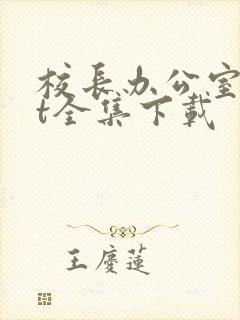 校長办公室
t全集下載
王慶蓮